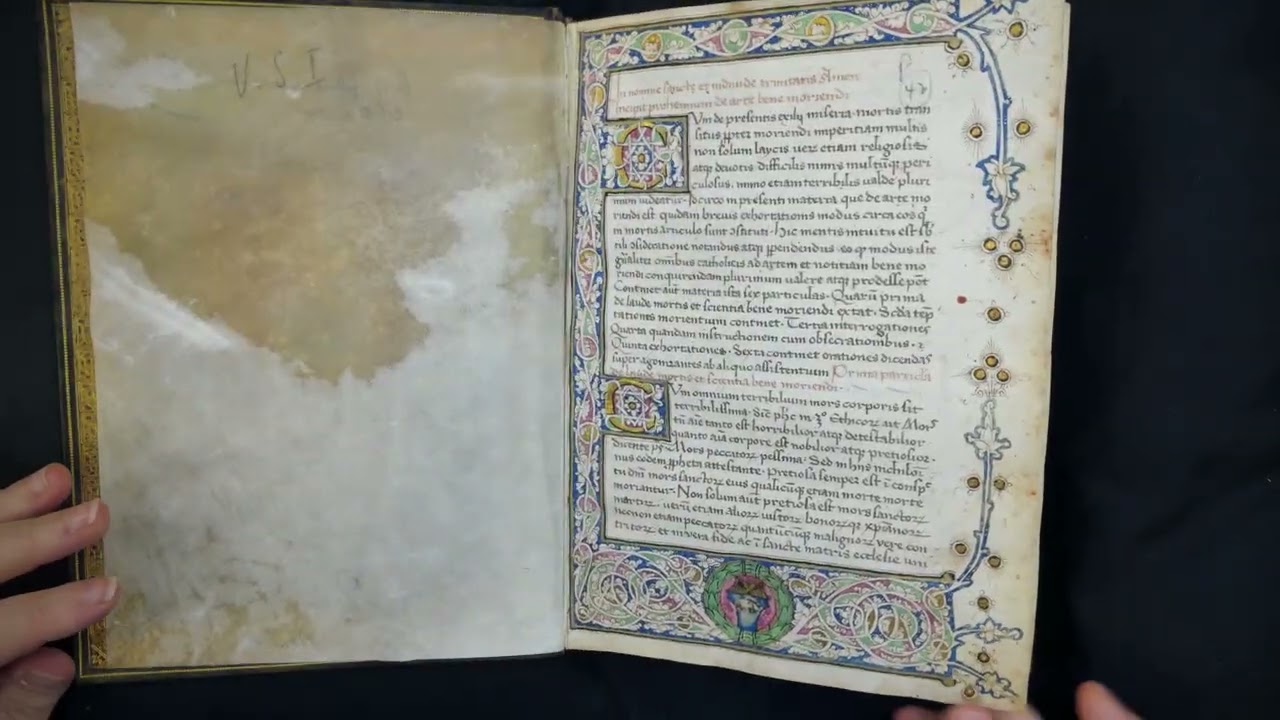 V. S I
In nomine sancte et individue trinitatis Amen
Incipit prohemium de arte bene moriendi
CVm de presentis exilij miseria mortis tran
situs ppter moriendi imperitiam multis
non solum laycis verz etiam religiosis
atqz devotis difficilis nimis multūqz peri
culosus, immo etiam terribilis valde pluri
mum videatur. Idcirco in presenti materia que de arte mo
riendi est quidam brevis exhortationis modus circa eos q̄
in mortis articulo sunt ɔstituti. hic mentis intuitu est sb
tili ɔsideratione notandus atqz ppendendus. eo qp modus iste
gn̄aliter omībus catholicis ad artem et notitiam bene mo
riendi conquirendam plurimum valere atqz prodesse pōt
Continet aūt materia ista sex particulas. Quarū prima
de laude mortis et scientia bene moriendi extat. Scda temp
tationes morientium continet. Tertia interrogationes
Quarta quandam instructionem cum obsecrationibus. z
Quinta exhortationes. Sexta continet orationes dicendas
super agonizantes ab aliquo assistentium Prima particla
de laude mortis et scientia bene moriendi.
CVm omnium terribilium mors corporis sit
terribilissima. sic̄ phc in 3° Ethicorz ait Mors
tn̄ aīe tanto est horribilior atqz detestabilior
quanto aīa corpore est nobilior atqz pretiosior.
dicente ps Mors peccatorz pessima. Sed in hijs nichilom
nus eodem ppheta attestante. Pretiosa semper est ī consp
tu dnī mors sanctorz eius qualicūqz etiam morte morte
moriantur. Non solum aūt pretiosa est mors sanctorz
martirz, verū etiam aliorz iustorz bonorzqz xpianorz
necnon etiam peccatorz quantūcūqz malignorz vere con
tritorz et in vera fide ac ī sancte matris ecclesie uni